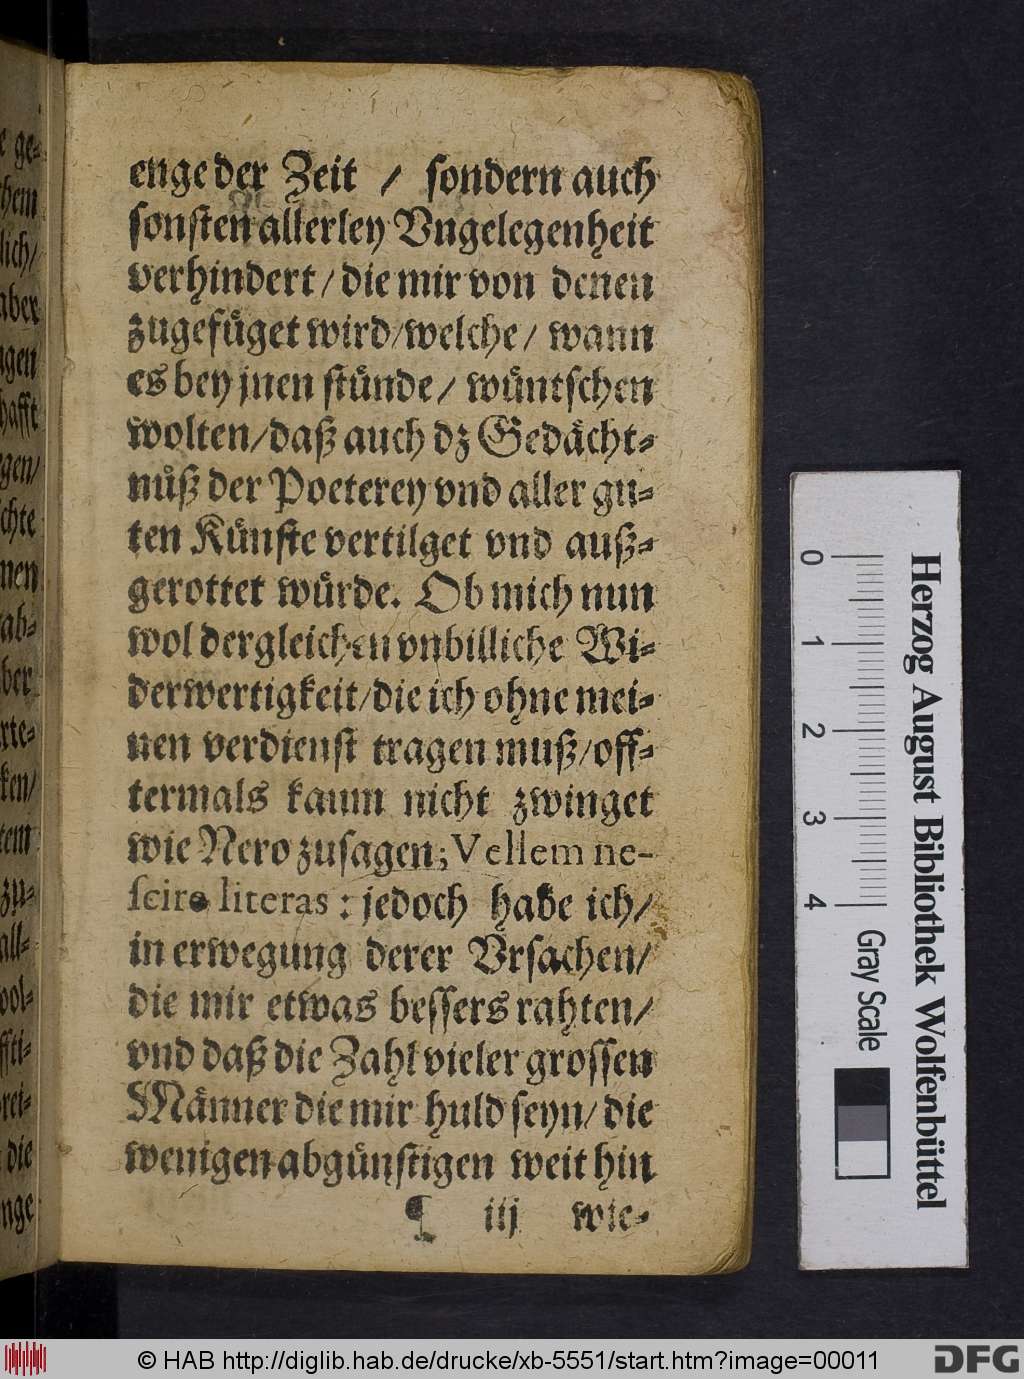 enge der Zeit / sondern auch
sonsten allerley Vngelegenheit
verhindert / die mir von denen
zugefüget wird / welche / wann
es bey jnen stünde / wüntschen
wolten / daß auch dz Gedächt-
nüß der Poeterey vnd aller gu-
ten Künste vertilget vnd auß-
gerottet würde. Ob mich nun
wol dergleichen vnbilliche Wi-
derwertigkeit / die ich ohne mei-
nen verdienst tragen muß / off-
termals kaum nicht zwinget
wie Nero zusagen; Vellem ne-
scire literas: jedoch habe ich /
in erwegung derer Vrsachen /
die mir etwas bessers rahten /
vnd daß die Zahl vieler grossen
Männer die mir huld seyn / die
wenigen abgünstigen weit hin
¶ iij wie-
ge-
hem
lich/
aber
gen
hafft
gen/
chte
nen
ab-
ber
rte-
ken/
tem
zu-
all-
ol-
ffti-
rei-
die
nge
0 1 2 3 4
Gray Scale
Herzog August Bibliothek Wolfenbüttel
© HAB http://diglib.hab.de/drucke/xb-5551/start.htm?image=00011
DFG